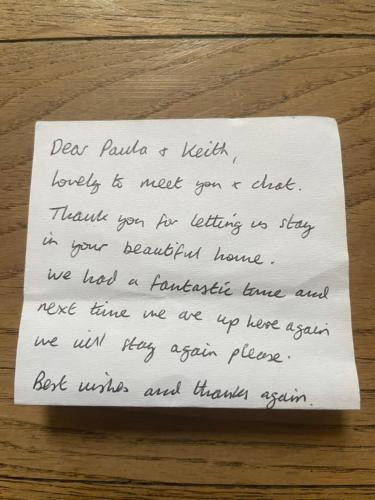 Dear Paula & Keith,
Lovely to meet you & chat.
Thank you for letting us stay
in your beautiful home.
We had a fantastic time and
next time we are up here again
we will stay again please.
Best wishes and thanks again.